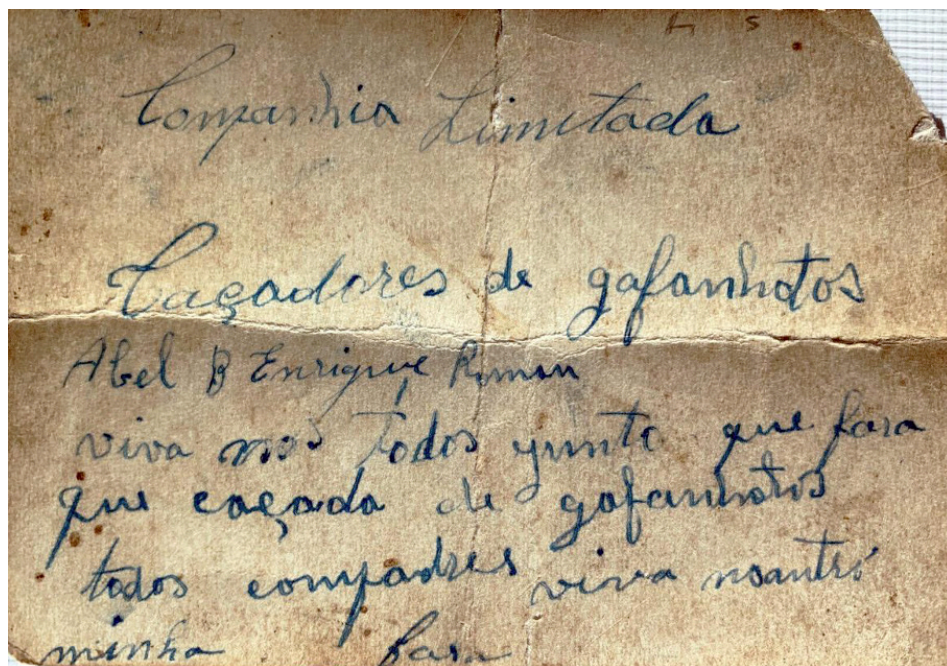 Companhia Limitada
Caçadores de gafanhotos
Abel B Enrique Roman
viva nos todos junto que fara
que caçada de gafanhotos
todos compadres viva noantri
minha fara